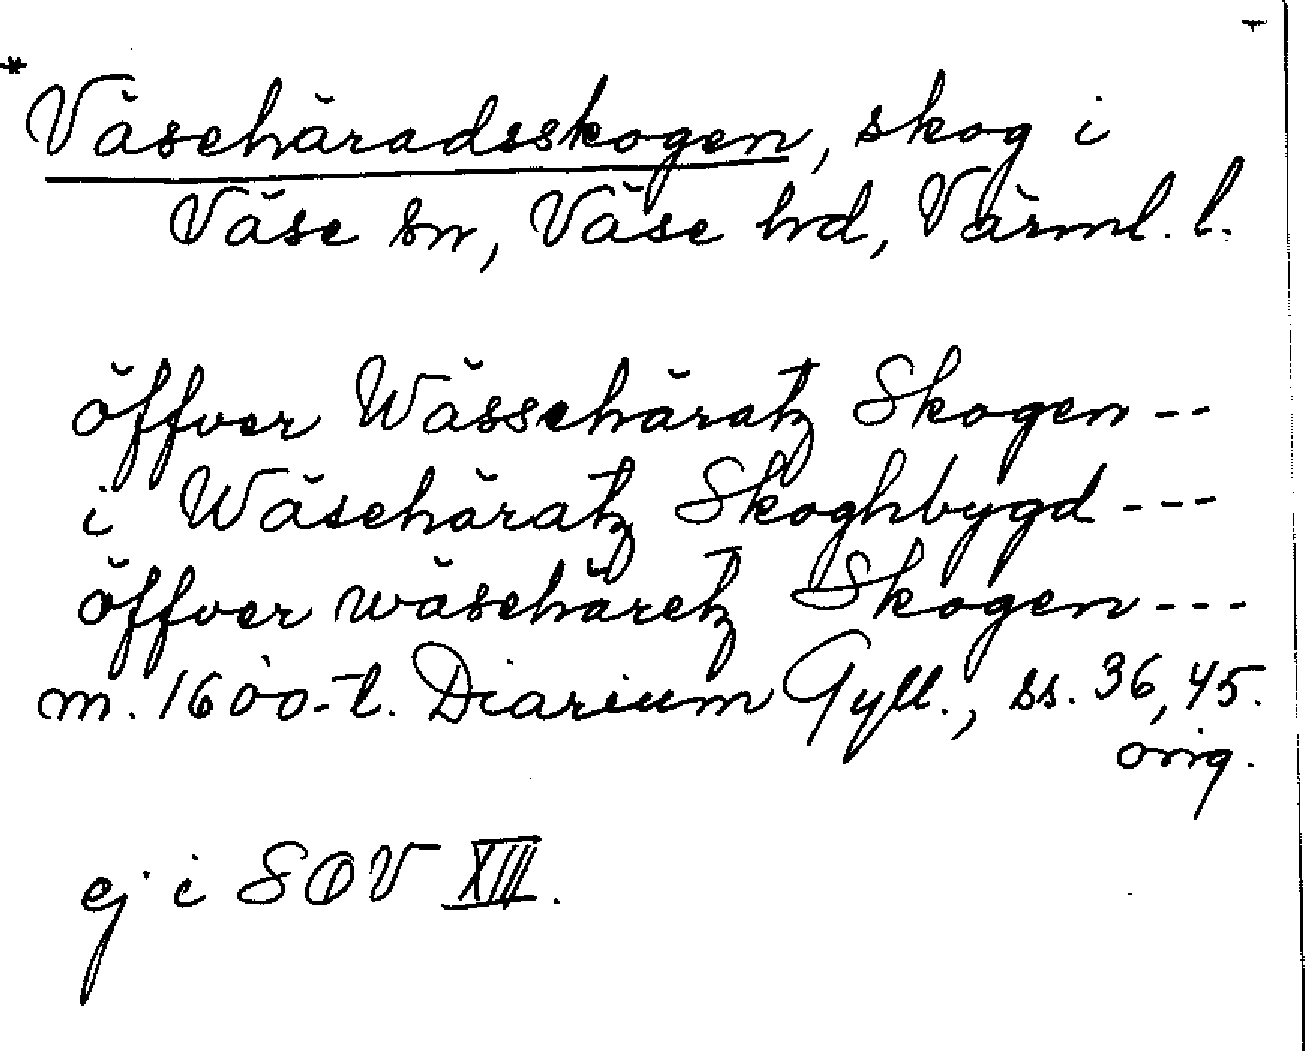 * Väsehäradsskogen, skog i
Väse sn, Väse hd, Värml. l.
öffver Wässehäratz Skogen --
i Wäsehäratz Skoghbygd ---
öffver wäsehäretz Skogen ---
m. 1600-t. Diarium Gyll., ss. 36, 45.
orig.
ej i SOV XIII.